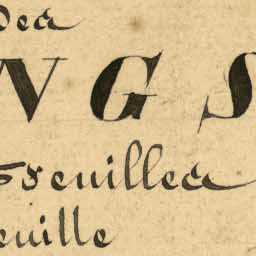 des
NGS
Feuilles
euille